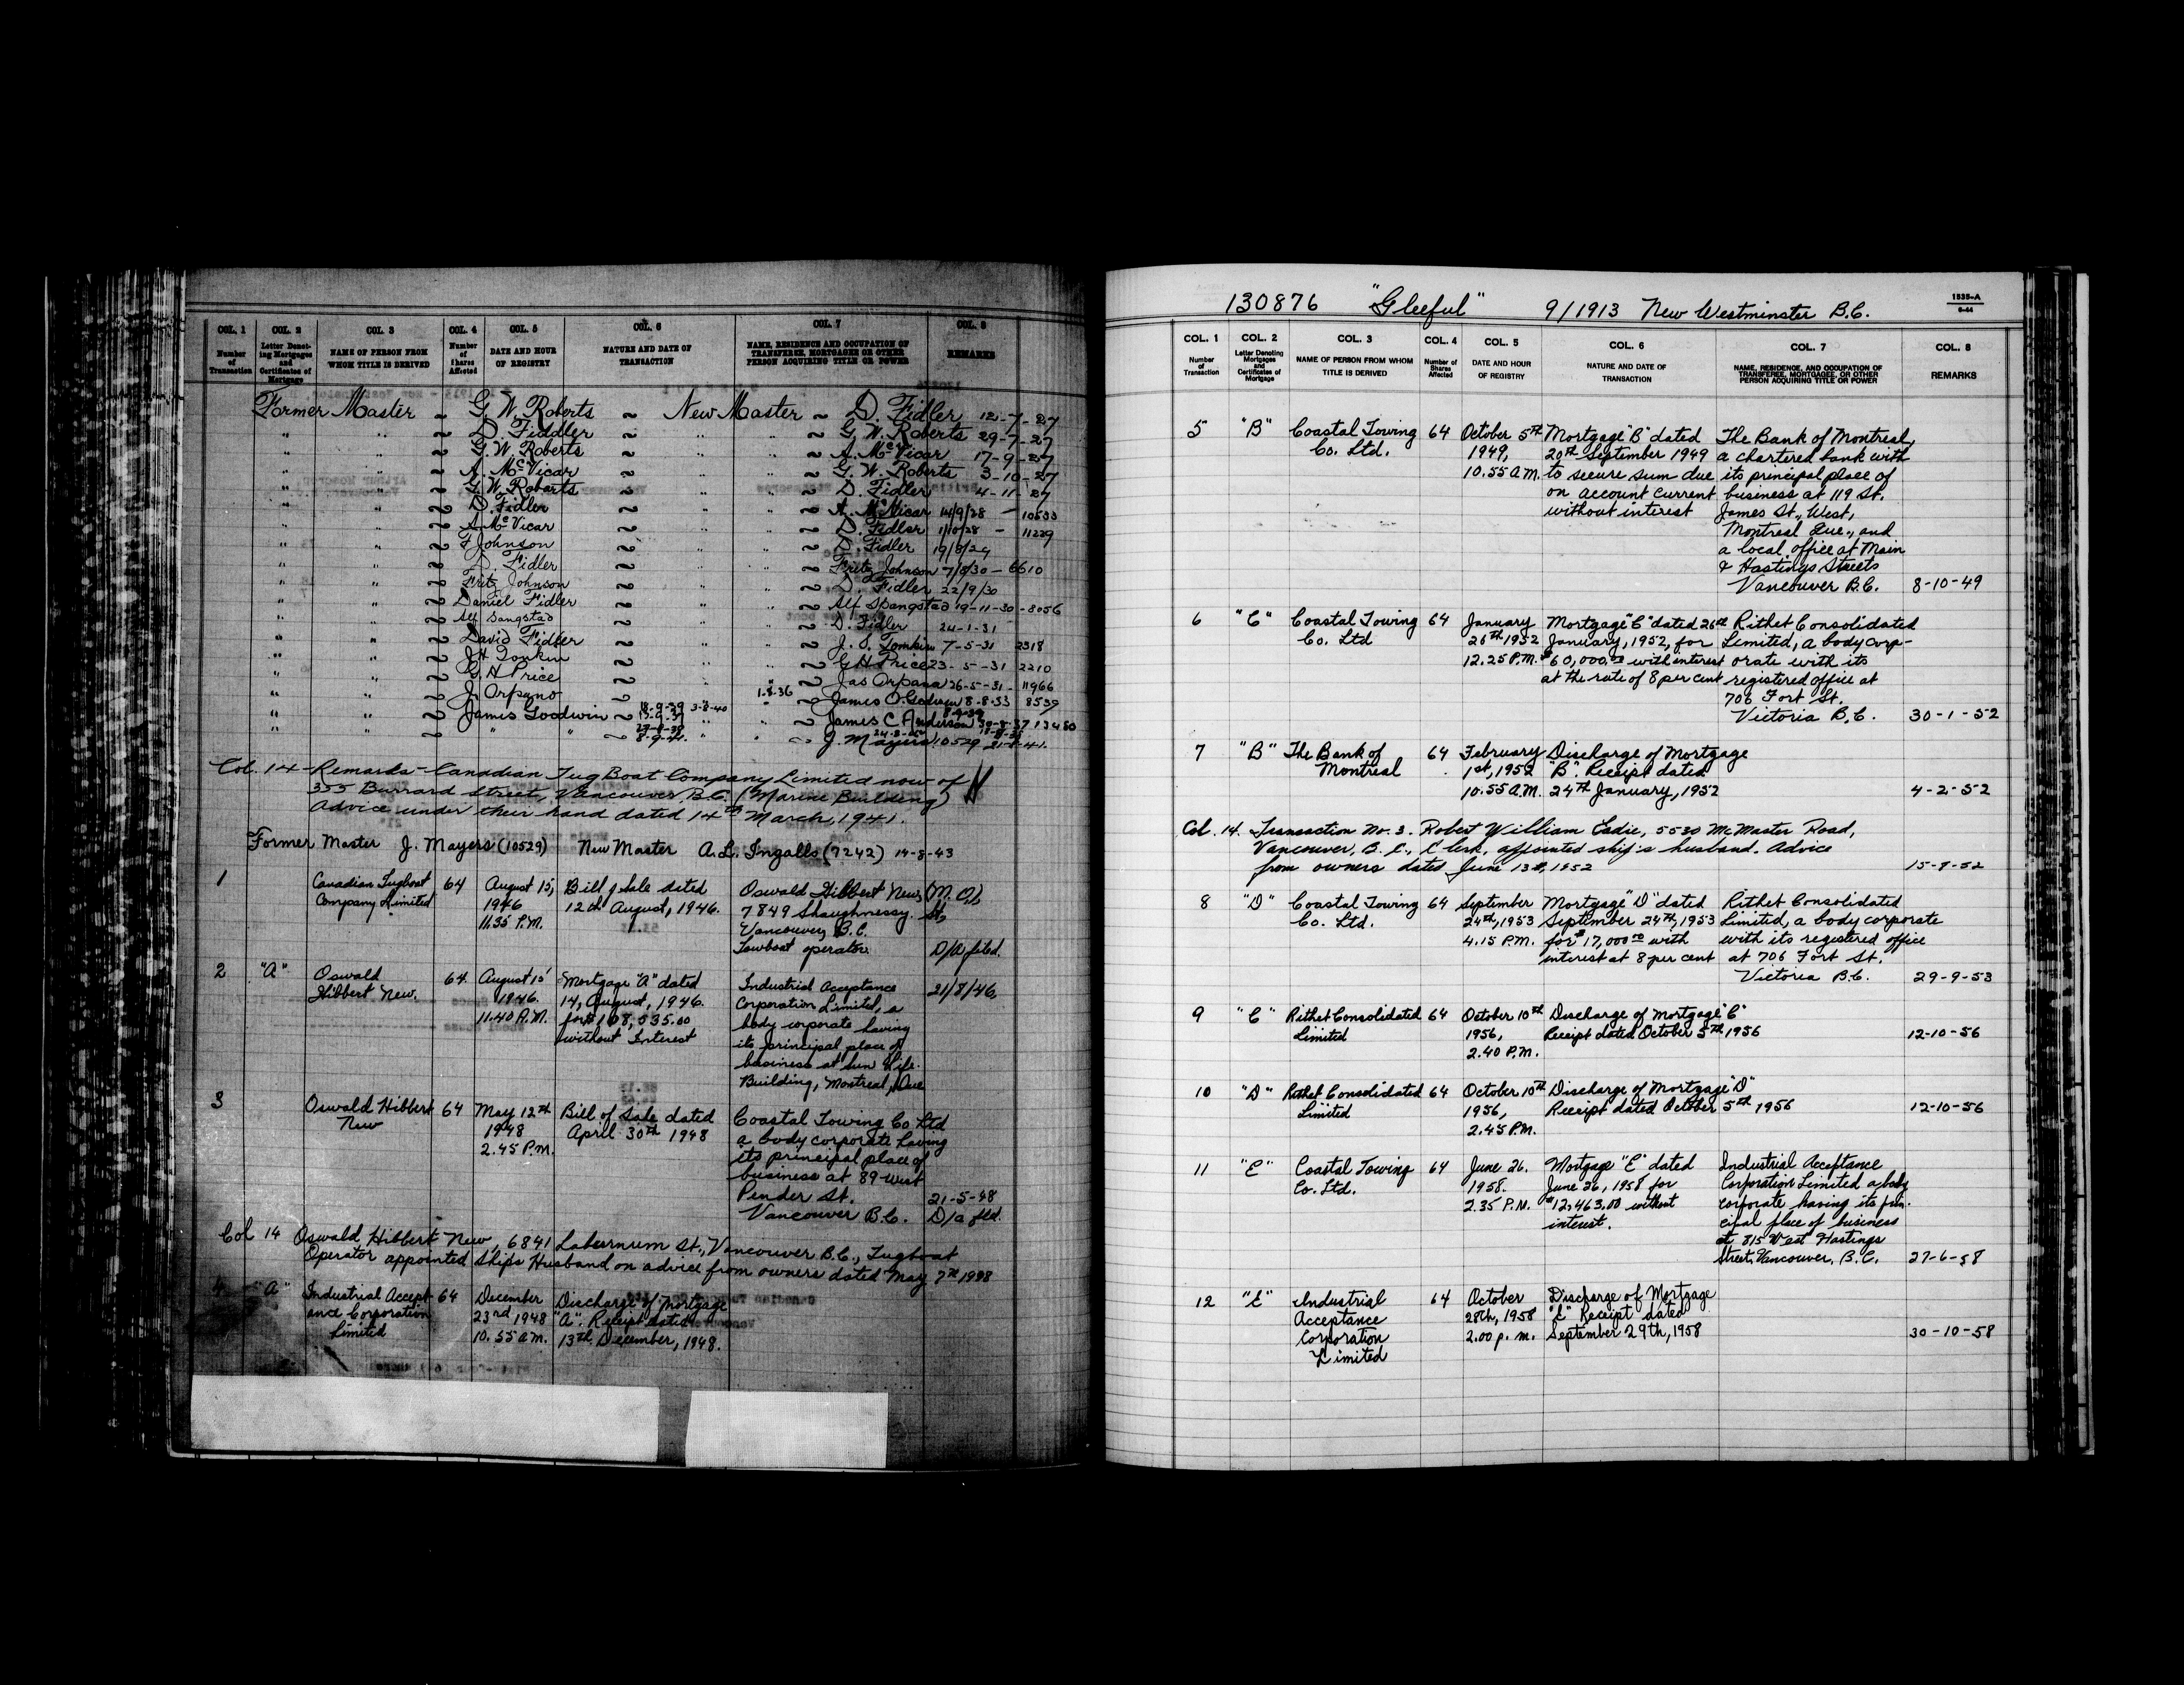 COL. 1 COL. 2 COL. 3 COL. 4 COL. 5 COL. 6 COL. 7 COL. 8
Number of Transaction
Letter Denoting Mortgages and Certificates of Mortgage
NAME OF PERSON FROM WHOM TITLE IS DERIVED
Number of Shares Affected
DATE AND HOUR OF REGISTRY
NATURE AND DATE OF TRANSACTION
NAME, RESIDENCE AND OCCUPATION OF TRANSFEREE, MORTGAGEE OR OTHER PERSON ACQUIRING TITLE OR POWER
REMARKS
Former Master ~ G. W. Roberts ~ New Master ~ D. Fidler 12-7-27
" " ~ D. Fiddler ~ " " ~ G. W. Roberts 29-7-27
" " ~ G. W. Roberts ~ " " ~ A. McVicar 17-9-27
" " ~ A. McVicar ~ " " ~ G. W. Roberts 3-10-27
" " ~ G. W. Roberts ~ " " ~ D. Fidler 4-11-27
" " ~ D. Fidler ~ " " ~ A. McVicar 14/9/28 - 10533
" " ~ A. McVicar ~ " " ~ D. Fidler 1/10/28 - 11229
" " ~ F Johnson ~ " " ~ D. Fidler 19/8/29
" " ~ D. Fidler ~ " " ~ Fritz Johnson 7/8/30 - 6610
" " ~ Fritz Johnson ~ " " ~ D. Fidler 22/9/30
" " ~ Daniel Fidler ~ " " ~ Alf Spangstad 19-11-30 - 8056
" " ~ Alf Sangstad ~ " " ~ D. Fidler 24-1-31
" " ~ David Fidler ~ " " ~ J. O. Tomkin 7-5-31 2318
" " ~ J H Tonkin ~ " " ~ G H Price 23-5-31 2210
" " ~ G. H Price ~ " " ~ Jas Orpana 26-5-31 - 11966
" " ~ J. Orpano ~ 1-8-36 " ~ James O. Godwin 8-8-33 8539
" " ~ James Goodwin ~ 18-9-39 3-8-40 " " ~ James C Anderson 13480
" " ~ " " ~ 8-9-41 " " ~ J. Mayers 10529 21-8-41.
Col. 14 - Remarks - Canadian Tug Boat Company Limited now of
355 Burrard Street, Vancouver, B.C. (Marine Building)
Advice under their hand dated 14th March, 1941.
Former Master J. Mayers (10529) New Master A. L. Ingalls (7242) 14-8-43
1 Canadian Tugboat 64 August 15, Bill of Sale dated Oswald Hibbert New, (M.O.),
Company Limited 1946 12th August, 1946. 7849 Shaughnessy St,
11.35 P.M. Vancouver, B.C.
Towboat operator. D/A filed.
2 "A" Oswald 64 August 15' Mortgage "A" dated Industrial Acceptance 21/8/46.
Hibbert New. 1946. 14, August, 1946. Corporation Limited, a
11.40 A.M. for $108,535.00 body corporate having
without Interest its principal place of
business at Sun Life
Building, Montreal, Que
3 Oswald Hibbert 64 May 12th Bill of Sale dated Coastal Towing Co Ltd
New 1948 April 30th 1948 a body corporate having
2.45 P.M. its principal place of
business at 89 West
Pender St. 21-5-48
Vancouver B.C. D/a fld.
Col 14 Oswald Hibbert New, 6841 Laburnum St., Vancouver B.C., Tugboat
Operator appointed Ships Husband on advice from owners dated May 7th 1948
4 "A" Industrial Accept- 64 December Discharge of Mortgage
ance Corporation 23rd 1948 "A". Receipt dated
Limited 10.55 A.M. 13th December, 1948.
130876 "Gleeful" 9/1913 New Westminster B.C.
1535-A
9-44
COL. 1 COL. 2 COL. 3 COL. 4 COL. 5 COL. 6 COL. 7 COL. 8
Number of Transaction
Letter Denoting Mortgages and Certificates of Mortgage
NAME OF PERSON FROM WHOM TITLE IS DERIVED
Number of Shares Affected
DATE AND HOUR OF REGISTRY
NATURE AND DATE OF TRANSACTION
NAME, RESIDENCE, AND OCCUPATION OF TRANSFEREE, MORTGAGEE, OR OTHER PERSON ACQUIRING TITLE OR POWER
REMARKS
5 "B" Coastal Towing 64 October 5th Mortgage "B" dated The Bank of Montreal,
Co. Ltd. 1949, 20th September 1949 a chartered bank with
10.55 A.M. to secure sum due its principal place of
on account current business at 119 St.
without interest James St., West,
Montreal Que., and
a local office at Main
& Hastings Streets
Vancouver B.C. 8-10-49
6 "C" Coastal Towing 64 January Mortgage "C" dated 26th Rithet Consolidated
Co. Ltd 26th 1952 January, 1952, for Limited, a body corp-
12.25 P.M. $60,000.00 with interest orate with its
at the rate of 8 per cent registered office at
706 Fort St.
Victoria B.C. 30-1-52
7 "B" The Bank of 64 February Discharge of Mortgage
Montreal 1st, 1952 "B". Receipt dated
10.55 A.M. 24th January, 1952 4-2-52
Col. 14. Transaction No. 3. Robert William Eadie, 5530 McMaster Road,
Vancouver, B.C., Clerk, appointed ship's husband. Advice
from owners dated June 13th, 1952 15-7-52
8 "D" Coastal Towing 64 September Mortgage "D" dated Rithet Consolidated
Co. Ltd. 24th, 1953 September 24th, 1953 Limited, a body corporate
4.15 P.M. for $17,000.00 with with its registered office
interest at 8 per cent at 706 Fort St.
Victoria B.C. 29-9-53
9 "C" Rithet Consolidated 64 October 10th Discharge of Mortgage "C"
Limited 1956, Receipt dated October 5th 1956 12-10-56
2.40 P.M.
10 "D" Rithet Consolidated 64 October 10th Discharge of Mortgage "D"
Limited 1956, Receipt dated October 5th 1956 12-10-56
2.45 P.M.
11 "E" Coastal Towing 64 June 26. Mortgage "E" dated Industrial Acceptance
Co. Ltd. 1958. June 26, 1958 for Corporation Limited a body
2.35 P.M. $12,463.00 without corporate having its prin-
interest. cipal place of business
at 815 West Hastings
Street, Vancouver, B.C. 27-6-58
12 "E" Industrial 64 October Discharge of Mortgage
Acceptance 28th, 1958 "E" Receipt dated
Corporation 2.00 p.m. September 29th, 1958 30-10-58
Limited